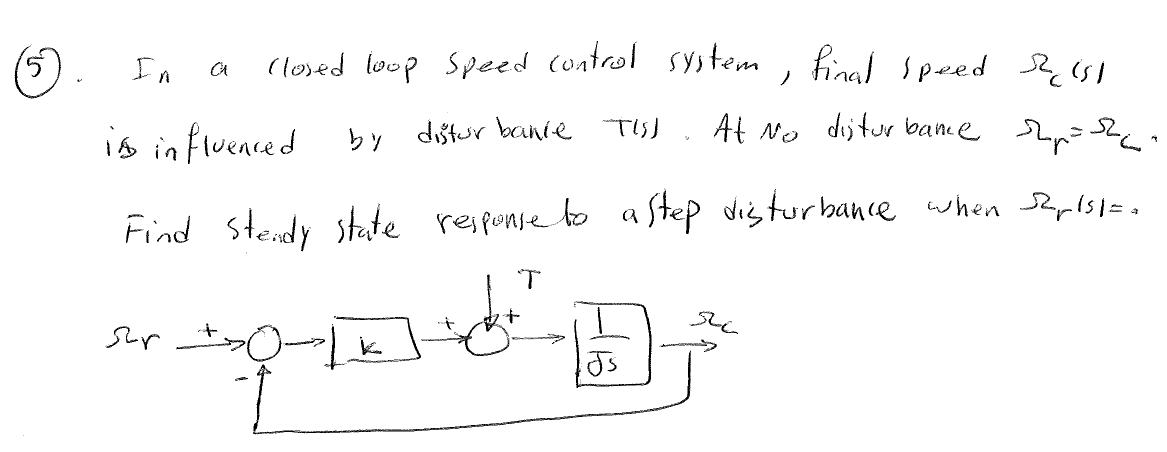 (5). In a closed loop speed control system, final speed Ωc(s)
is influenced by disturbance T(s). At No disturbance Ωr=Ωc.
Find steady state response to a step disturbance when Ωr(s)=0
T
Ωr + K + + 1/Js Ωc
-